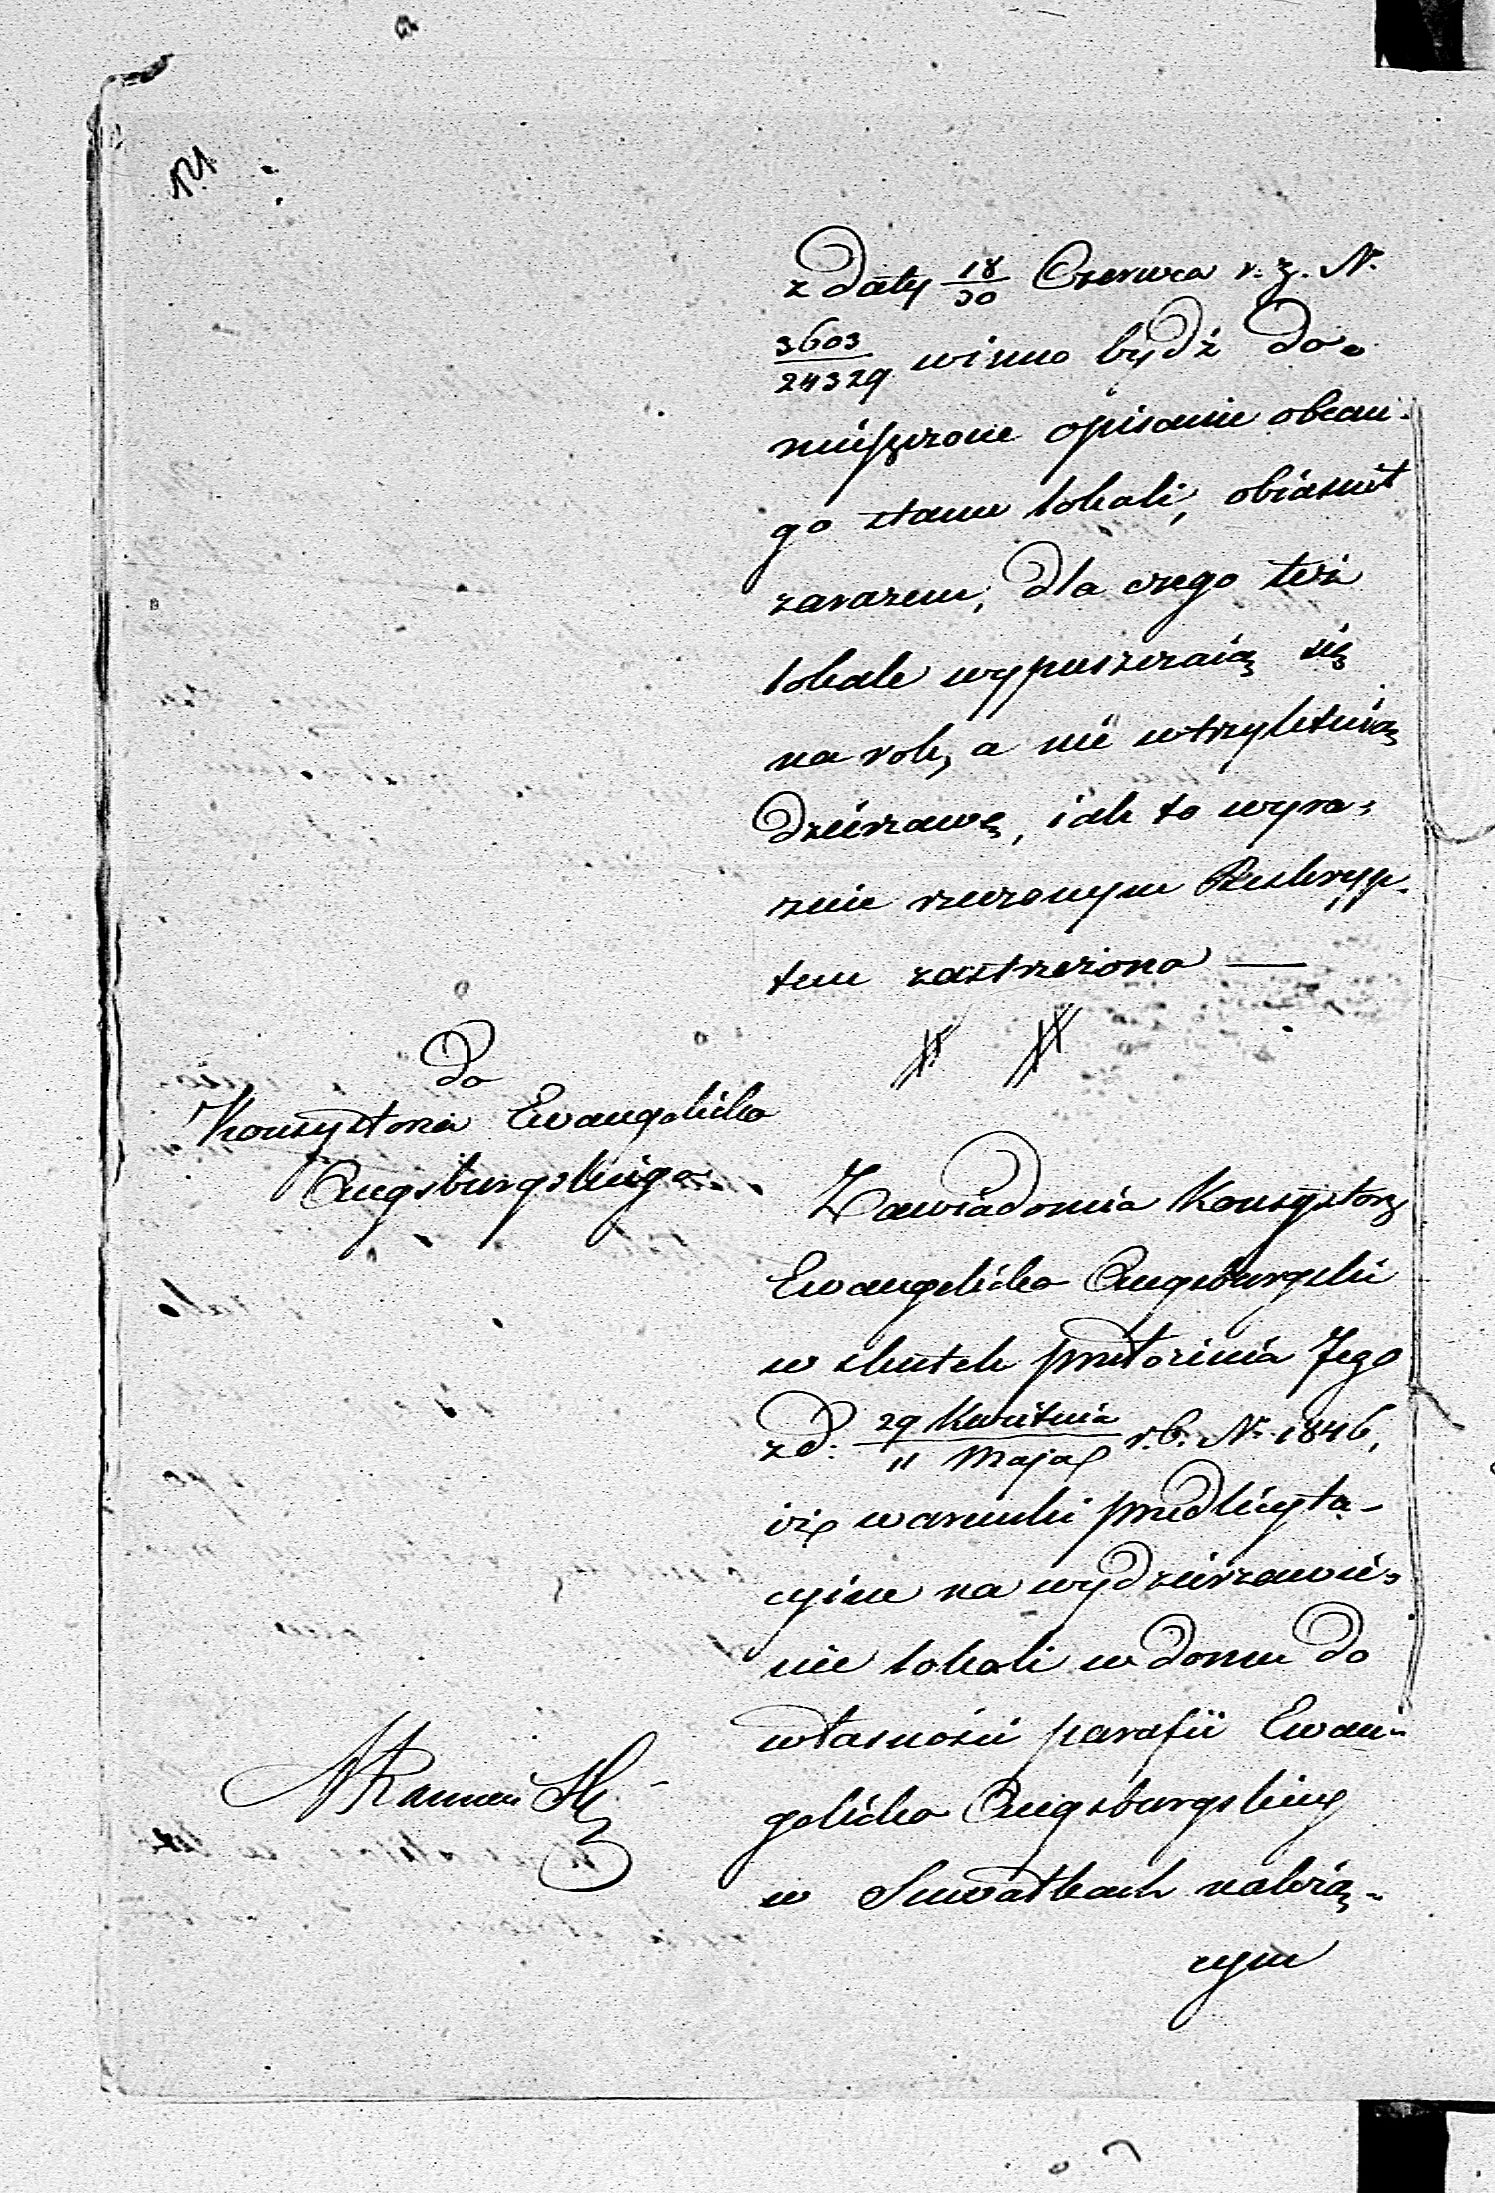 z daty 18/30 Czerwca r. z. N.
3603/24329 winno bydź do-
mieszczone opisanie obecne-
go stanu lokali, obiasnić
zarazem, dla czego też
lokale wypuszczaią się
na rok, a nie w trzyletnią
dzierzawę, iak to wyra-
znie rzeczonym Reskryp-
tem zastrzeżono —
Do
Konsystorza Ewangelicko
Augsburgskiego
Zawiadomia Konsystorz
Ewangelicko Augsburgski
w skutek przełożenia Jego
z d. 29 Kwietnia/11 Maja r. b. N. 1846,
iż warunki przedlicyta-
cyine na wydzierzawie-
nie lokali w domu do
własności parafii Ewan-
gelicko Augsburgskiey
w Suwałkach należą-
cym